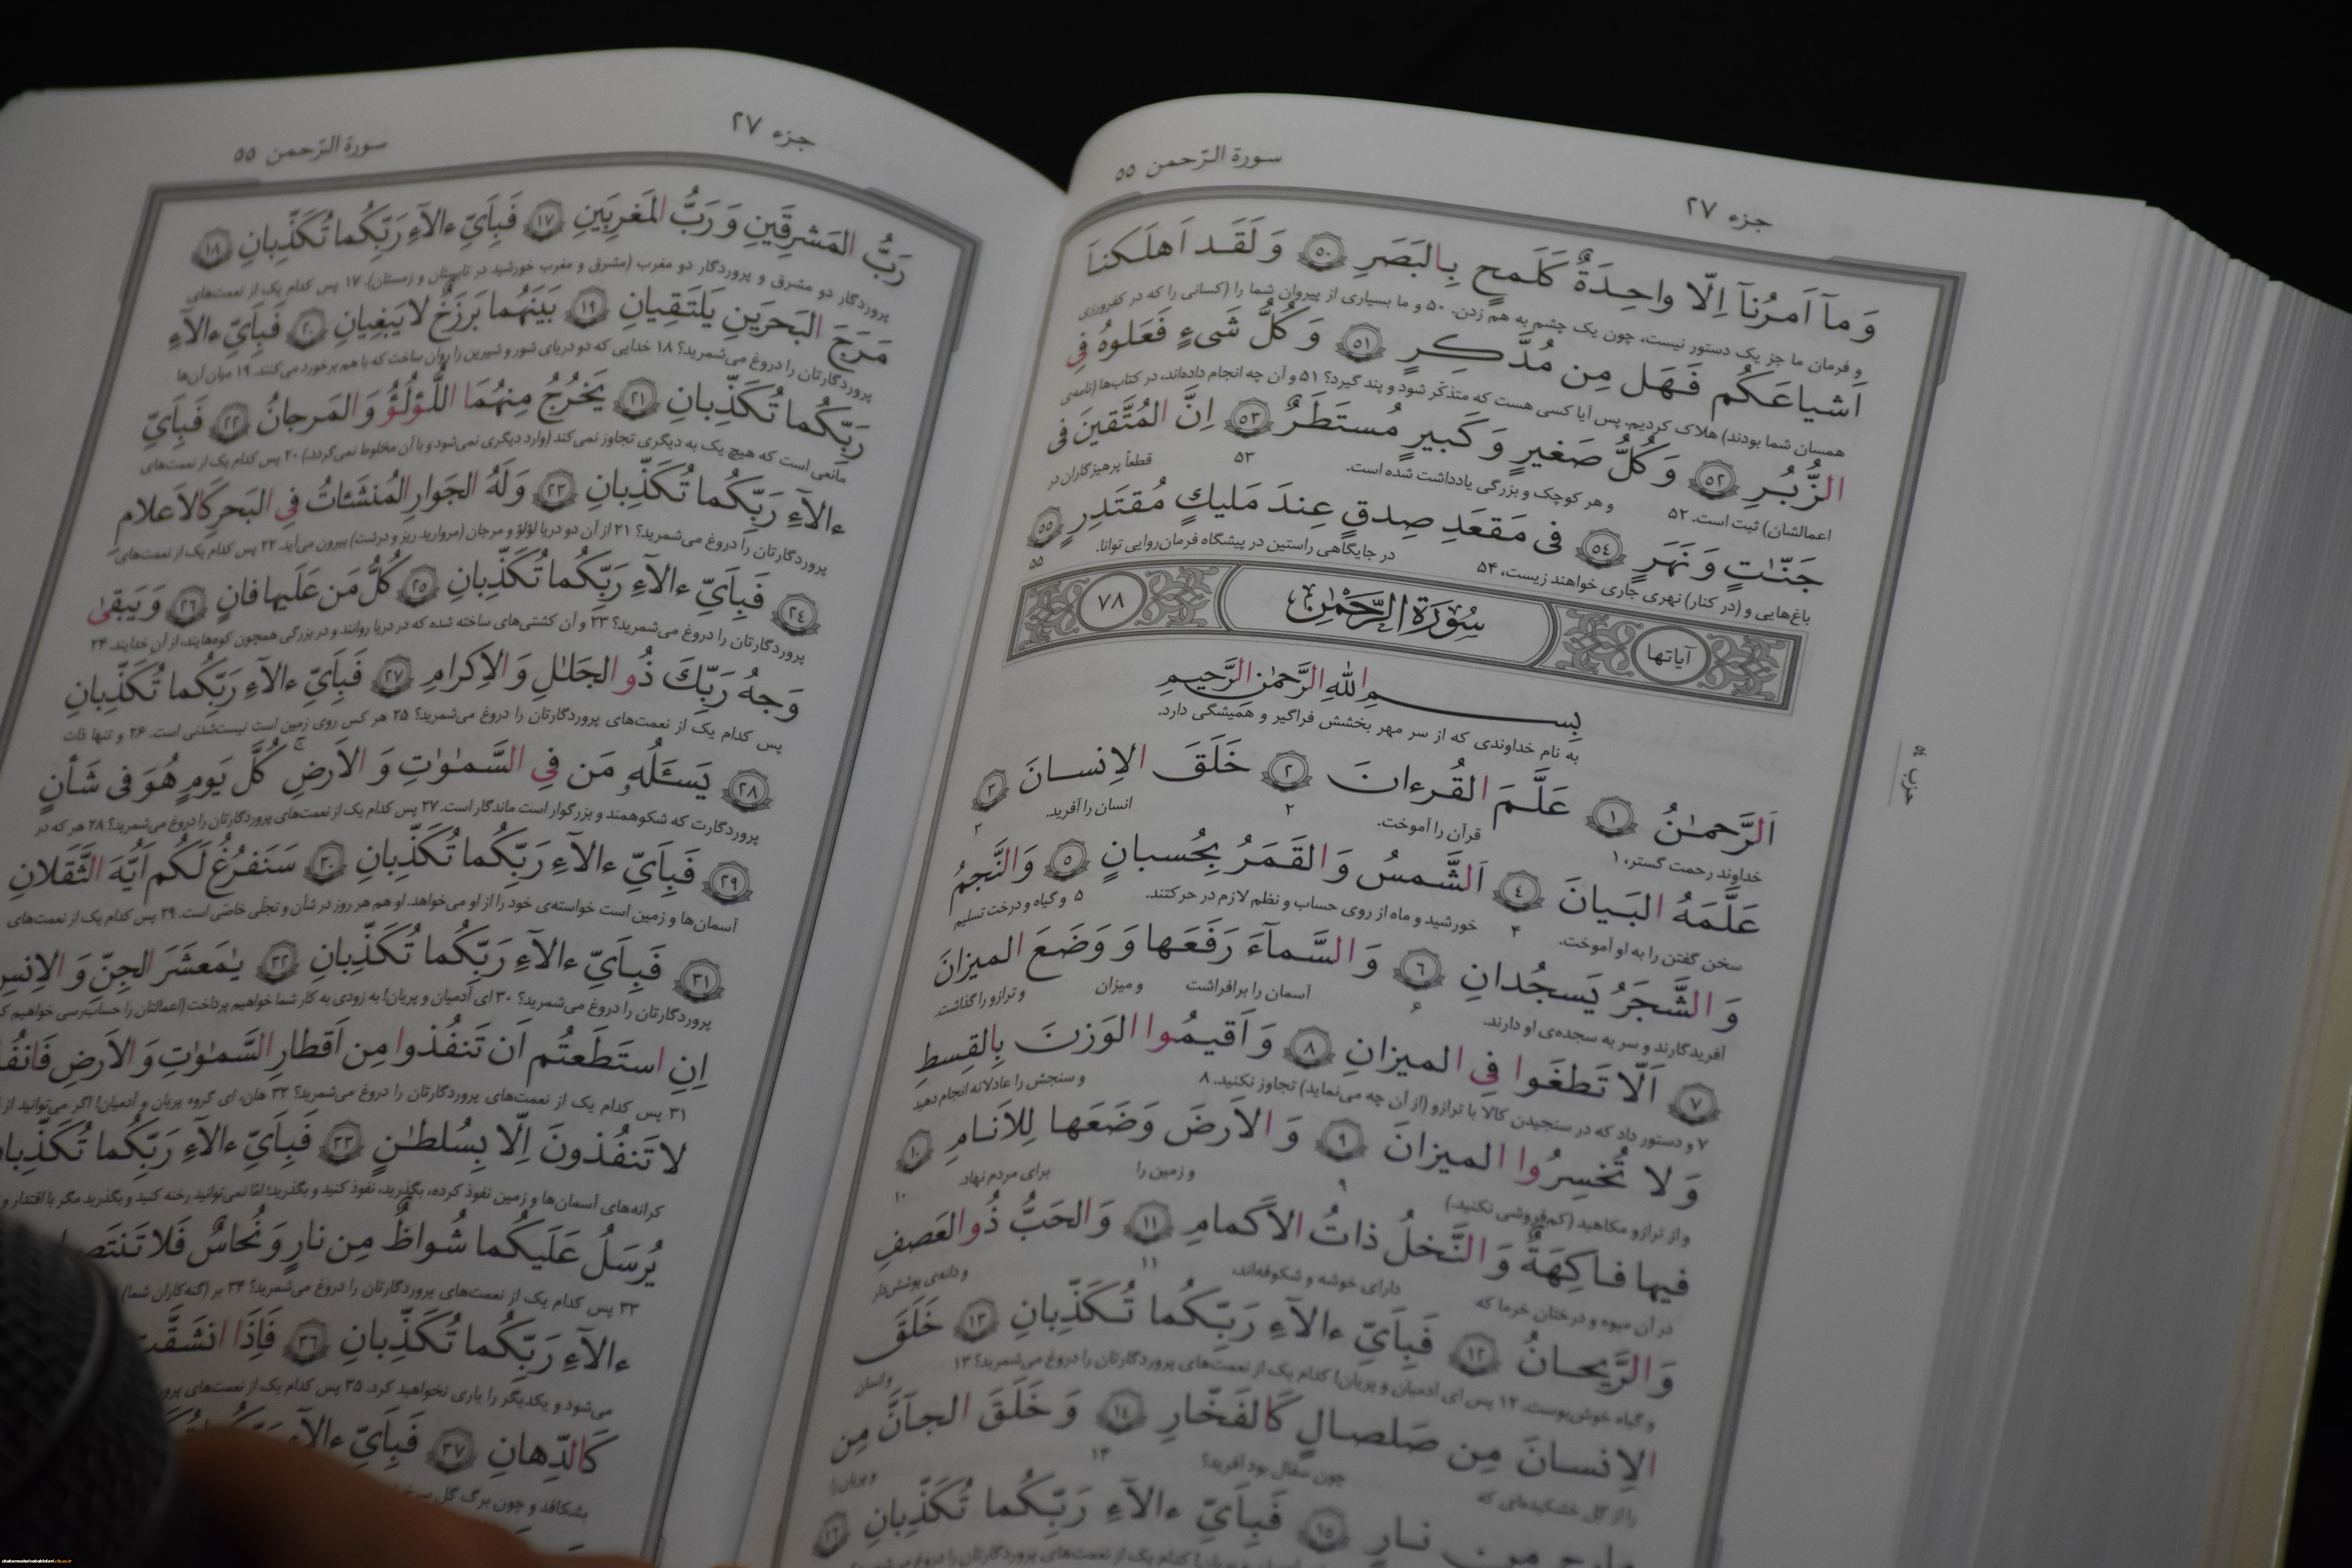 جزء ۲۷
سورة الرّحمن ۵۵
وَ مآ اَمرُنآ اِلّا واحِدَةٌ كَلَمحٍ بِالبَصَرِ ٥٠ وَ لَقَد اَهلَكنا
و فرمان ما جز یک دستور نیست، چون یک چشم به هم زدن. ۵۰ و ما بسیاری از پیروان شما را (کسانی را که در کفرورزی
اَشياعَكُم فَهَل مِن مُدَّكِرٍ ٥١ وَ كُلُّ شَیءٍ فَعَلوهُ فِی
همسان شما بودند) هلاک کردیم. پس آیا کسی هست که متذکّر شود و پند گیرد؟ ۵۱ و آن چه انجام داده‌اند، در کتاب‌ها (نامه‌ی
الزُّبُرِ ٥٢ وَ كُلُّ صَغيرٍ وَ كَبيرٍ مُستَطَرٌ ٥٣ اِنَّ المُتَّقينَ فی
اعمالشان) ثبت است. ۵۲ و هر کوچک و بزرگی یادداشت شده است. ۵۳ قطعاً پرهیزگاران در
جَنّـٰتٍ وَ نَهَرٍ ٥٤ فی مَقعَدِ صِدقٍ عِندَ مَليكٍ مُقتَدِرٍ ٥٥
باغ‌هایی و (در کنار) نهری جاری خواهند زیست، ۵۴ در جایگاهی راستین در پیشگاه فرمان‌روایی توانا. ۵۵
آیاتها سُورَةُ الرَّحمٰنِ ۷۸
بِسمِ اللّٰهِ الرَّحمٰنِ الرَّحيمِ
به نام خداوندی که از سر مهر بخشش فراگیر و همیشگی دارد.
اَلرَّحمـٰنُ ١ عَلَّمَ القُرءانَ ٢ خَلَقَ الاِنسانَ ٣
خداوند رحمت گستر، ۱ قرآن را آموخت. ۲ انسان را آفرید. ۳
عَلَّمَهُ البَيانَ ٤ اَلشَّمسُ وَ القَمَرُ بِحُسبانٍ ٥ وَ النَّجمُ
سخن گفتن را به او آموخت. ۴ خورشید و ماه از روی حساب و نظم لازم در حرکتند. ۵ و گیاه و درخت تسلیم
وَ الشَّجَرُ يَسجُدانِ ٦ وَ السَّمآءَ رَفَعَها وَ وَضَعَ الميزانَ
آفریدگارند و سر به سجده‌ی او دارند. ۶ آسمان را برافراشت و میزان و ترازو را گذاشت.
٧ اَلّا تَطغَوا فِی الميزانِ ٨ وَ اَقيمُوا الوَزنَ بِالقِسطِ
۷ و دستور داد که در سنجیدن کالا با ترازو (از آن چه می‌نماید) تجاوز نکنید. ۸ و سنجش را عادلانه انجام دهید
وَ لا تُخسِرُوا الميزانَ ٩ وَ الاَرضَ وَضَعَها لِلاَنامِ ١٠
و از ترازو مکاهید (کم‌فروشی نکنید.) ۹ و زمین را برای مردم نهاد. ۱۰
فيها فاكِهَةٌ وَ النَّخلُ ذاتُ الاَكمامِ ١١ وَ الحَبُّ ذُو العَصفِ
در آن میوه و درختان خرما که دارای خوشه و شکوفه‌اند، ۱۱ و دانه‌ی پوشش‌دار
وَ الرَّيحانُ ١٢ فَبِاَیِّ ءالآءِ رَبِّكُما تُكَذِّبانِ ١٣ خَلَقَ
و گیاه خوش‌بوست. ۱۲ پس ای آدمیان و پریان! کدام یک از نعمت‌های پروردگارتان را دروغ می‌شمرید؟ ۱۳ و انسان
الاِنسانَ مِن صَلصالٍ كَالفَخّارِ ١٤ وَ خَلَقَ الجآنَّ مِن
را از گل خشکیده‌ای که چون سفال بود آفرید؟ ۱۴ و پریان را
مارِجٍ مِن نارٍ ١٥ فَبِاَیِّ ءالآءِ رَبِّكُما تُكَذِّبانِ ١٦
حزب
جزء ۲۷
سورة الرّحمن ۵۵
رَبُّ المَشرِقَينِ وَ رَبُّ المَغرِبَينِ ١٧ فَبِاَیِّ ءالآءِ رَبِّكُما تُكَذِّبانِ ١٨
پروردگار دو مشرق و پروردگار دو مغرب (مشرق و مغرب خورشید در تابستان و زمستان). ۱۷ پس کدام یک از نعمت‌های
مَرَجَ البَحرَينِ يَلتَقِيانِ ١٩ بَينَهُما بَرزَخٌ لا يَبغِيانِ ٢٠ فَبِاَیِّ ءالآءِ
پروردگارتان را دروغ می‌شمرید؟ ۱۸ خدایی که دو دریای شور و شیرین را روان ساخت که با هم برخورد می‌کنند. ۱۹ میان آن‌ها
رَبِّكُما تُكَذِّبانِ ٢١ يَخرُجُ مِنهُمَا اللُّؤلُؤُ وَ المَرجانُ ٢٢ فَبِاَیِّ
مانعی است که هیچ یک به دیگری تجاوز نمی‌کند (وارد دیگری نمی‌شود و با آن مخلوط نمی‌گردد.) ۲۰ پس کدام یک از نعمت‌های
ءالآءِ رَبِّكُما تُكَذِّبانِ ٢٣ وَ لَهُ الجَوارِ المُنشَئاتُ فِی البَحرِ كَالاَعلامِ
پروردگارتان را دروغ می‌شمرید؟ ۲۱ از آن دو دریا لؤلؤ و مرجان (مروارید ریز و درشت) بیرون می‌آید. ۲۲ پس کدام یک از نعمت‌های
٢٤ فَبِاَیِّ ءالآءِ رَبِّكُما تُكَذِّبانِ ٢٥ كُلُّ مَن عَلَيها فانٍ ٢٦ وَ يَبقیٰ
پروردگارتان را دروغ می‌شمرید؟ ۲۳ و آن کشتی‌های ساخته شده که در دریا روانند و در بزرگی همچون کوه‌هایند، از آن خدایند. ۲۴
وَجهُ رَبِّكَ ذُو الجَلـٰلِ وَ الاِكرامِ ٢٧ فَبِاَیِّ ءالآءِ رَبِّكُما تُكَذِّبانِ
پس کدام یک از نعمت‌های پروردگارتان را دروغ می‌شمرید؟ ۲۵ هر کس روی زمین است نیست‌شدنی است. ۲۶ و تنها ذات
٢٨ يَسئَلُهُ مَن فِی السَّمـٰوٰتِ وَ الاَرضِ كُلَّ يَومٍ هُوَ فی شَأنٍ
پروردگارت که شکوهمند و بزرگوار است ماندگار است. ۲۷ پس کدام یک از نعمت‌های پروردگارتان را دروغ می‌شمرید؟ ۲۸ هر که در
٢٩ فَبِاَیِّ ءالآءِ رَبِّكُما تُكَذِّبانِ ٣٠ سَنَفرُغُ لَكُم اَيُّهَ الثَّقَلانِ
آسمان‌ها و زمین است خواسته‌ی خود را از او می‌خواهد. او هم هر روز در شأن و تجلّی خاصّی است. ۲۹ پس کدام یک از نعمت‌های
٣١ فَبِاَیِّ ءالآءِ رَبِّكُما تُكَذِّبانِ ٣٢ يـٰمَعشَرَ الجِنِّ وَ الاِنسِ
پروردگارتان را دروغ می‌شمرید؟ ۳۰ ای آدمیان و پریان! به زودی به کار شما خواهیم پرداخت (اعمالتان را حساب‌رسی خواهیم
اِنِ استَطَعتُم اَن تَنفُذوا مِن اَقطارِ السَّمـٰوٰتِ وَ الاَرضِ
۳۱ پس کدام یک از نعمت‌های پروردگارتان را دروغ می‌شمرید؟ ۳۲ هان، ای گروه پریان و آدمیان! اگر می‌توانید از
لا تَنفُذونَ اِلّا بِسُلطـٰنٍ ٣٣ فَبِاَیِّ ءالآءِ رَبِّكُما
کرانه‌های آسمان‌ها و زمین نفوذ کرده، بگذرید، نفوذ کنید و بگذرید؛ امّا نمی‌توانید رخنه کنید و بگذرید مگر با اقتدار و
يُرسَلُ عَلَيكُما شُواظٌ مِن نارٍ وَ نُحاسٌ فَلا
۳۳ پس کدام یک از نعمت‌های پروردگارتان را دروغ می‌شمرید؟ ۳۴ بر (گنه‌کاران شما)
ءالآءِ رَبِّكُما تُكَذِّبانِ ٣٦ فَاِذَا انشَقَّت
می‌شود و یکدیگر را یاری نخواهید کرد. ۳۵ پس کدام یک از نعمت‌های
كَالدِّهانِ ٣٧ فَبِاَیِّ ءالآءِ
بشکافد و چون برگ گل